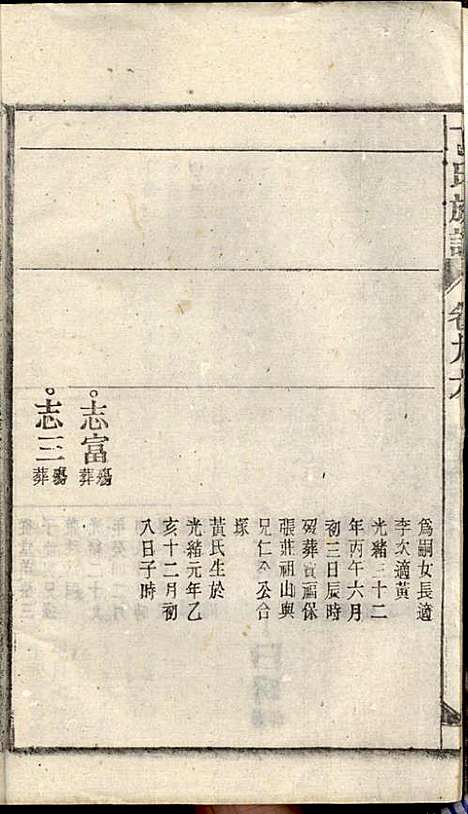 氏族譜
卷九六
爲嗣女長適
李次適黃
光緒三十二
年丙午六月
初三日辰時
歿葬寳福保
張莊祖山與
兄仁公合
塚
黃氏生於
光緒元年乙
亥十二月初
八日子時
志富殤葬
志三殤葬